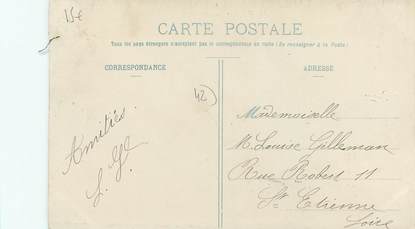 15€
CARTE POSTALE
Tous les pays étrangers n'acceptent pas la correspondance au recto (Se renseigner à la Poste)
CORRESPONDANCE
ADRESSE
42
Amitiés
Mademoiselle
M. Louise Gilleman
Rue Robert 11
St Etienne
Loire